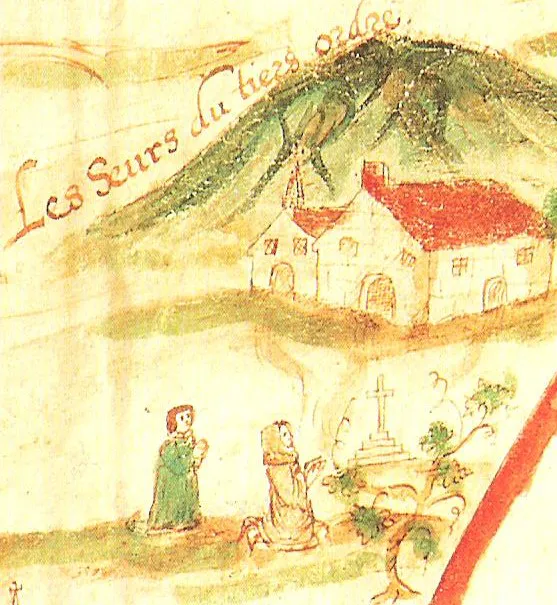 Les Seurs du tiers ordre.